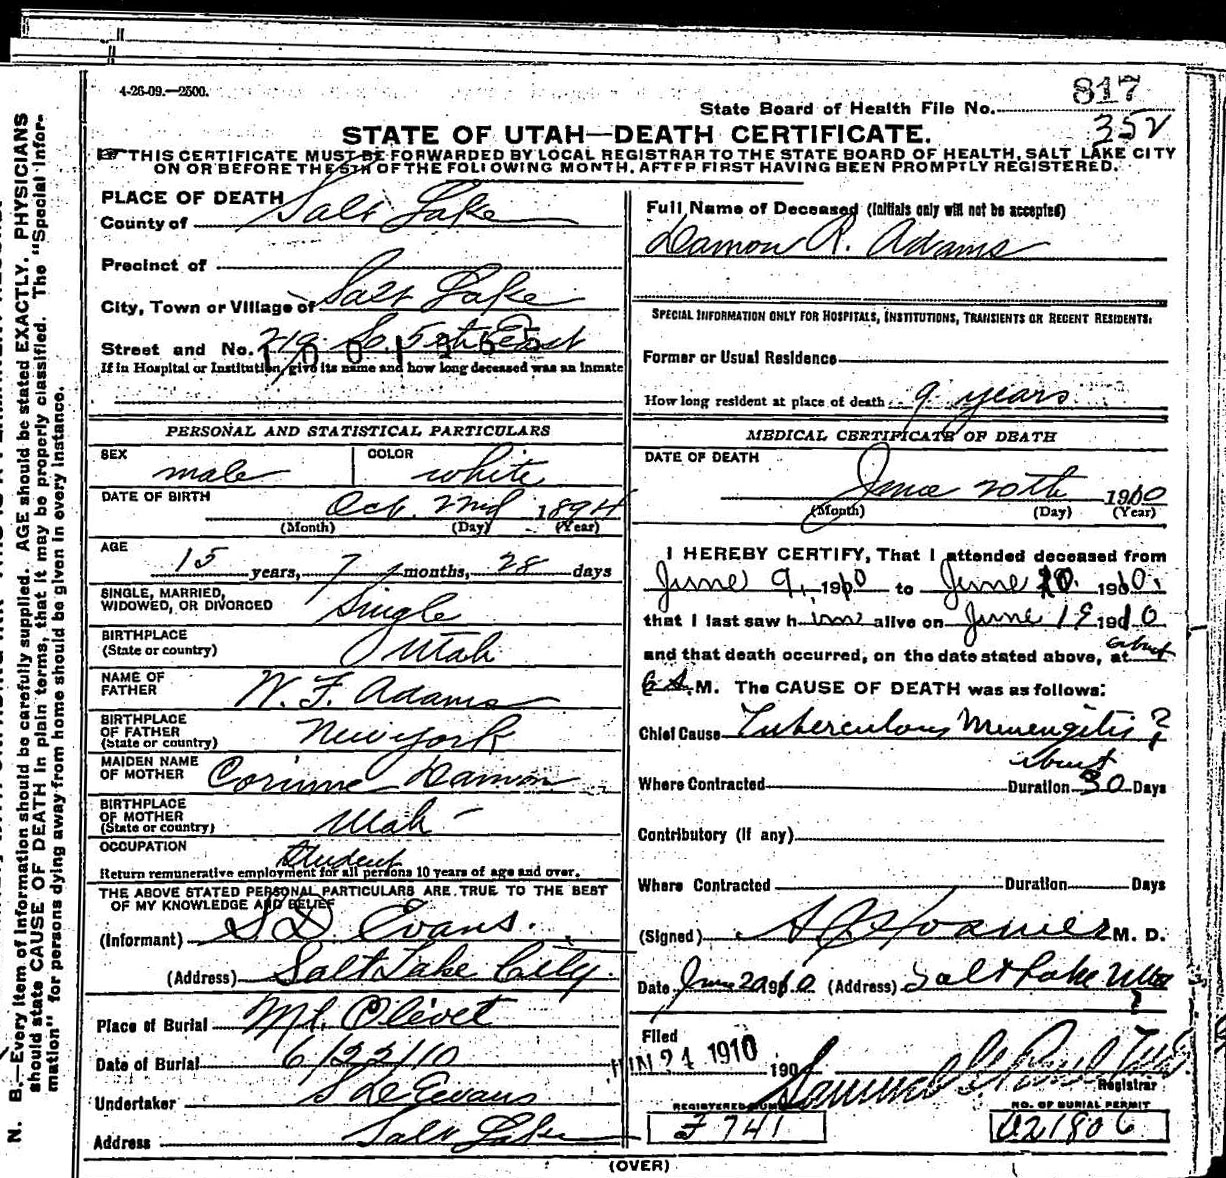 4-26-09.—2500.
817
State Board of Health File No.
352
STATE OF UTAH—DEATH CERTIFICATE.
THIS CERTIFICATE MUST BE FORWARDED BY LOCAL REGISTRAR TO THE STATE BOARD OF HEALTH, SALT LAKE CITY
ON OR BEFORE THE 5TH OF THE FOLLOWING MONTH, AFTER FIRST HAVING BEEN PROMPTLY REGISTERED.
PLACE OF DEATH
County of Salt Lake
Precinct of
City, Town or Village of Salt Lake
Street and No. 219 So. 5th East
If in Hospital or Institution, give its name and how long deceased was an inmate
PERSONAL AND STATISTICAL PARTICULARS
SEX male COLOR white
DATE OF BIRTH Oct. 22nd 1894
(Month) (Day) (Year)
AGE
15 years, 7 months, 28 days
SINGLE, MARRIED,
WIDOWED, OR DIVORCED Single
BIRTHPLACE
(State or country) Utah
NAME OF
FATHER W. F. Adams
BIRTHPLACE
OF FATHER
(State or country) New York
MAIDEN NAME
OF MOTHER Corinne Damon
BIRTHPLACE
OF MOTHER
(State or country) Utah
OCCUPATION
Student
Return remunerative employment for all persons 10 years of age and over.
THE ABOVE STATED PERSONAL PARTICULARS ARE TRUE TO THE BEST
OF MY KNOWLEDGE AND BELIEF
(Informant) S D Evans.
(Address) Salt Lake City.
Place of Burial Mt. Olivet
Date of Burial 6/22/10
Undertaker S D Evans
Address Salt Lake
Full Name of Deceased (Initials only will not be accepted)
Damon R. Adams
SPECIAL INFORMATION ONLY FOR HOSPITALS, INSTITUTIONS, TRANSIENTS OR RECENT RESIDENTS:
Former or Usual Residence
How long resident at place of death 9 years
MEDICAL CERTIFICATE OF DEATH
DATE OF DEATH
June 20th 1910
(Month) (Day) (Year)
I HEREBY CERTIFY, That I attended deceased from
June 9, 1910 to June 20. 1910.
that I last saw him alive on June 19 1910
and that death occurred, on the date stated above, at about
6 A.M. The CAUSE OF DEATH was as follows:
Chief Cause Tuberculous Menengitis?
Where Contracted Duration about 30 Days
Contributory (If any)
Where Contracted Duration Days
(Signed) M. D.
Date June 20 1910 (Address) Salt Lake Utah
Filed
JUN 21 1910 190
Samuel G. Paul
Registrar
REGISTERED NUMBER NO. OF BURIAL PERMIT
J 741 021806
(OVER)
N. B.—Every item of information should be carefully supplied. AGE should be stated EXACTLY. PHYSICIANS
should state CAUSE OF DEATH in plain terms, that it may be properly classified. The "Special Infor-
mation" for persons dying away from home should be given in every instance.